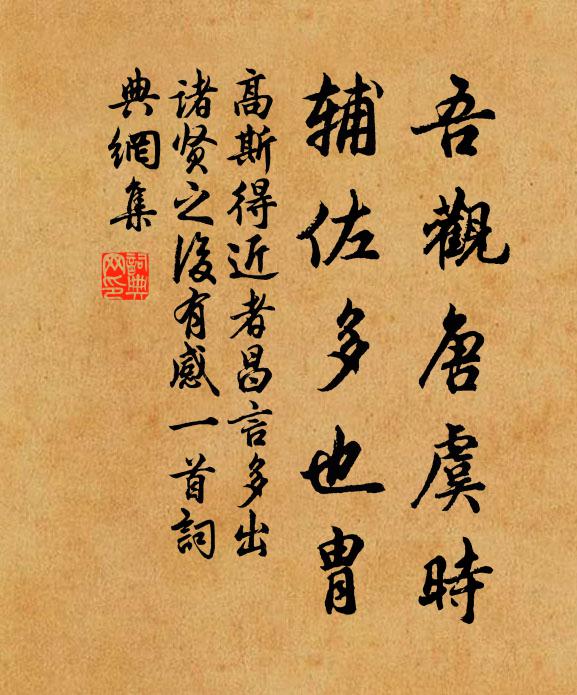 吾觀唐虞時
輔佐多也胄
高斯得近者昌言多出
諸贤之後有感一首詞
典網集
詞典网印